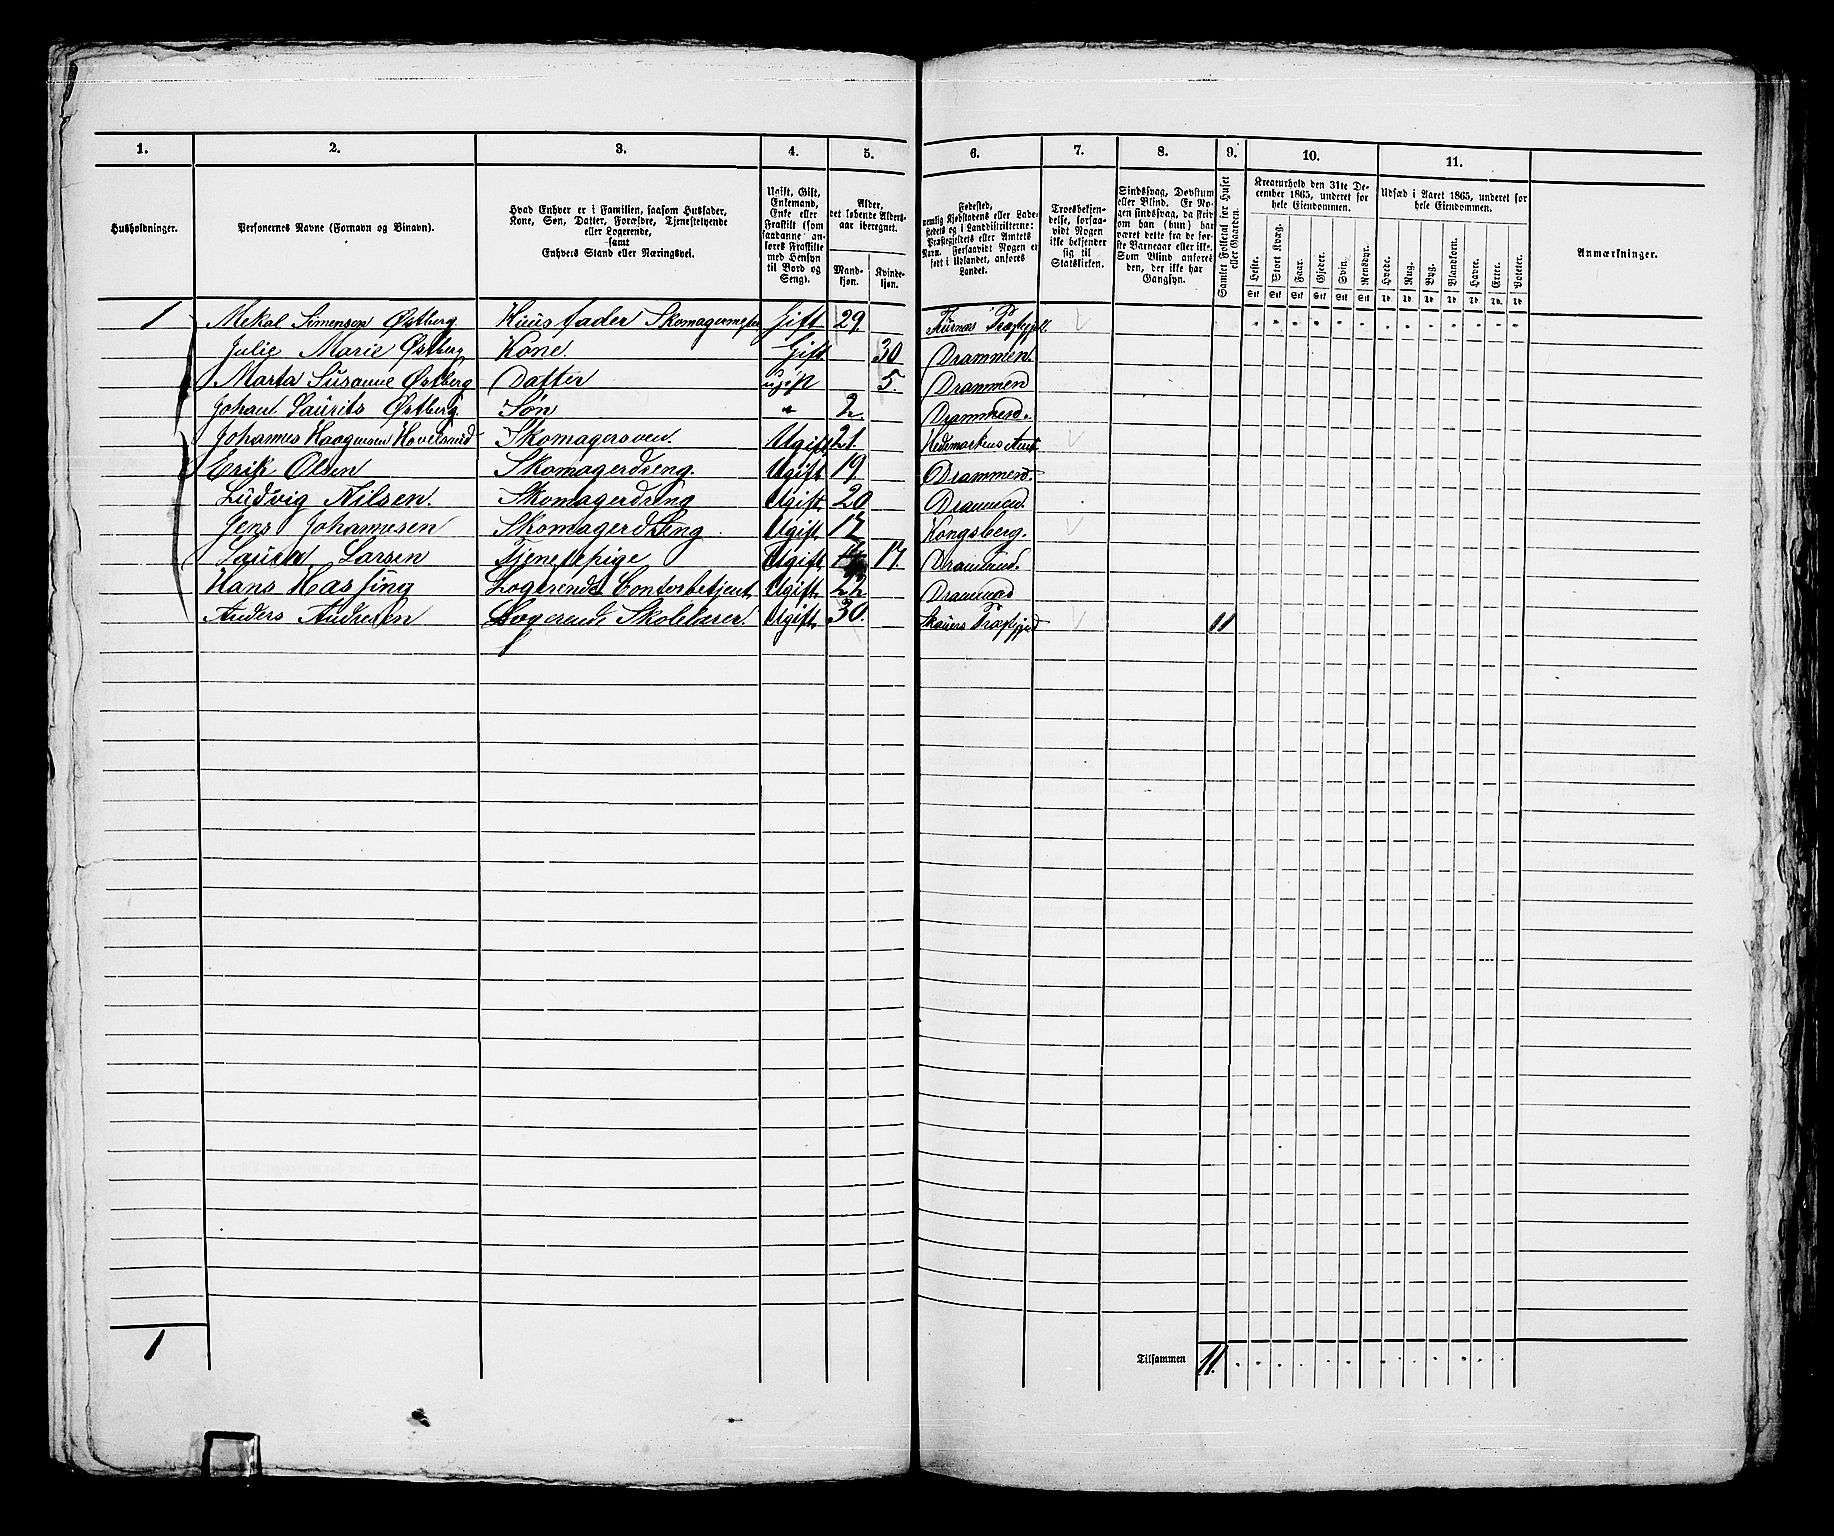 1. 2. 3. 4. 5. 6. 7. 8. 9. 10. 11.
Husholdninger.
Personernes Navne (Fornavn og Binavn).
Hvad Enhver er i Familien, saasom Husfader,
Kone, Søn, Datter, Forældre, Tjenestetyende
eller Logerende,
samt
Enhvers Stand eller Næringsvei.
Ugift, Gift,
Enkemand,
Enke eller
Fraskilt (som
saadanne an-
føres Fraskilte
med Hensyn
til Bord og
Seng).
Alder,
det løbende Alders-
aar iberegnet.
Mand-
kjøn.
Kvinde-
kjøn.
Fødested,
nemlig Kjøbstadens eller Lade-
stedets og i Landdistrikterne:
Præstegjeldets eller Amtets
Navn. Forsaavidt Nogen er
født i Udlandet, anføres
Landet.
Troesbekjen-
delse, forsaa-
vidt Nogen
ikke bekjender
sig til
Statskirken.
Sindssvag, Døvstum
eller Blind. Er No-
gen sindssvag, da skriv
om han (hun) har
været dette fra de før-
ste Barneaar eller ikke.
Som Blind anføres
den, der ikke har
Gangsyn.
Samlet Folketal for Huset
eller Gaarden.
Kreaturhold den 31te De-
cember 1865, underet for
hele Eiendommen.
Heste. Stort Kvæg. Faar. Gjeder. Svin. Rensdyr.
Stk Stk Stk Stk Stk Stk
Udsæd i Aaret 1865, underet for
hele Eiendommen.
Hvede. Rug. Byg. Blandkorn. Havre. Erter. Poteter.
Td. Td. Td. Td. Td. Td. Td.
Anmærkninger.
1 Mekal Simensen Østberg Huusfader Skomagermester Gift 29.
Julie Marie Østberg Kone. Gift 30 Drammen.
Marta Susanne Østberg Datter ugift 5. Drammen
Johan Laurits Østberg. Søn " 2. Drammen.
Johannes Haagensen Skomagersven. Ugift 21. Hedemarkens Amt
Erik Olsen Skomagerdreng. Ugift 19 Drammen.
Ludvig Nilsen. Skomagerdreng Ugift. 20 Drammen.
Jens Johannesen Skomagerdreng Ugift. 17 Kongsberg.
Larsen Tjenestepige Ugift. 17. Drammen.
Hans Hassing Logerende Contorbetjent Ugift. 22 Drammen
Anders Andresen Logerende Skolelærer. Ugift. 30. Præstgjeld 11
1
Tilsammen 11.